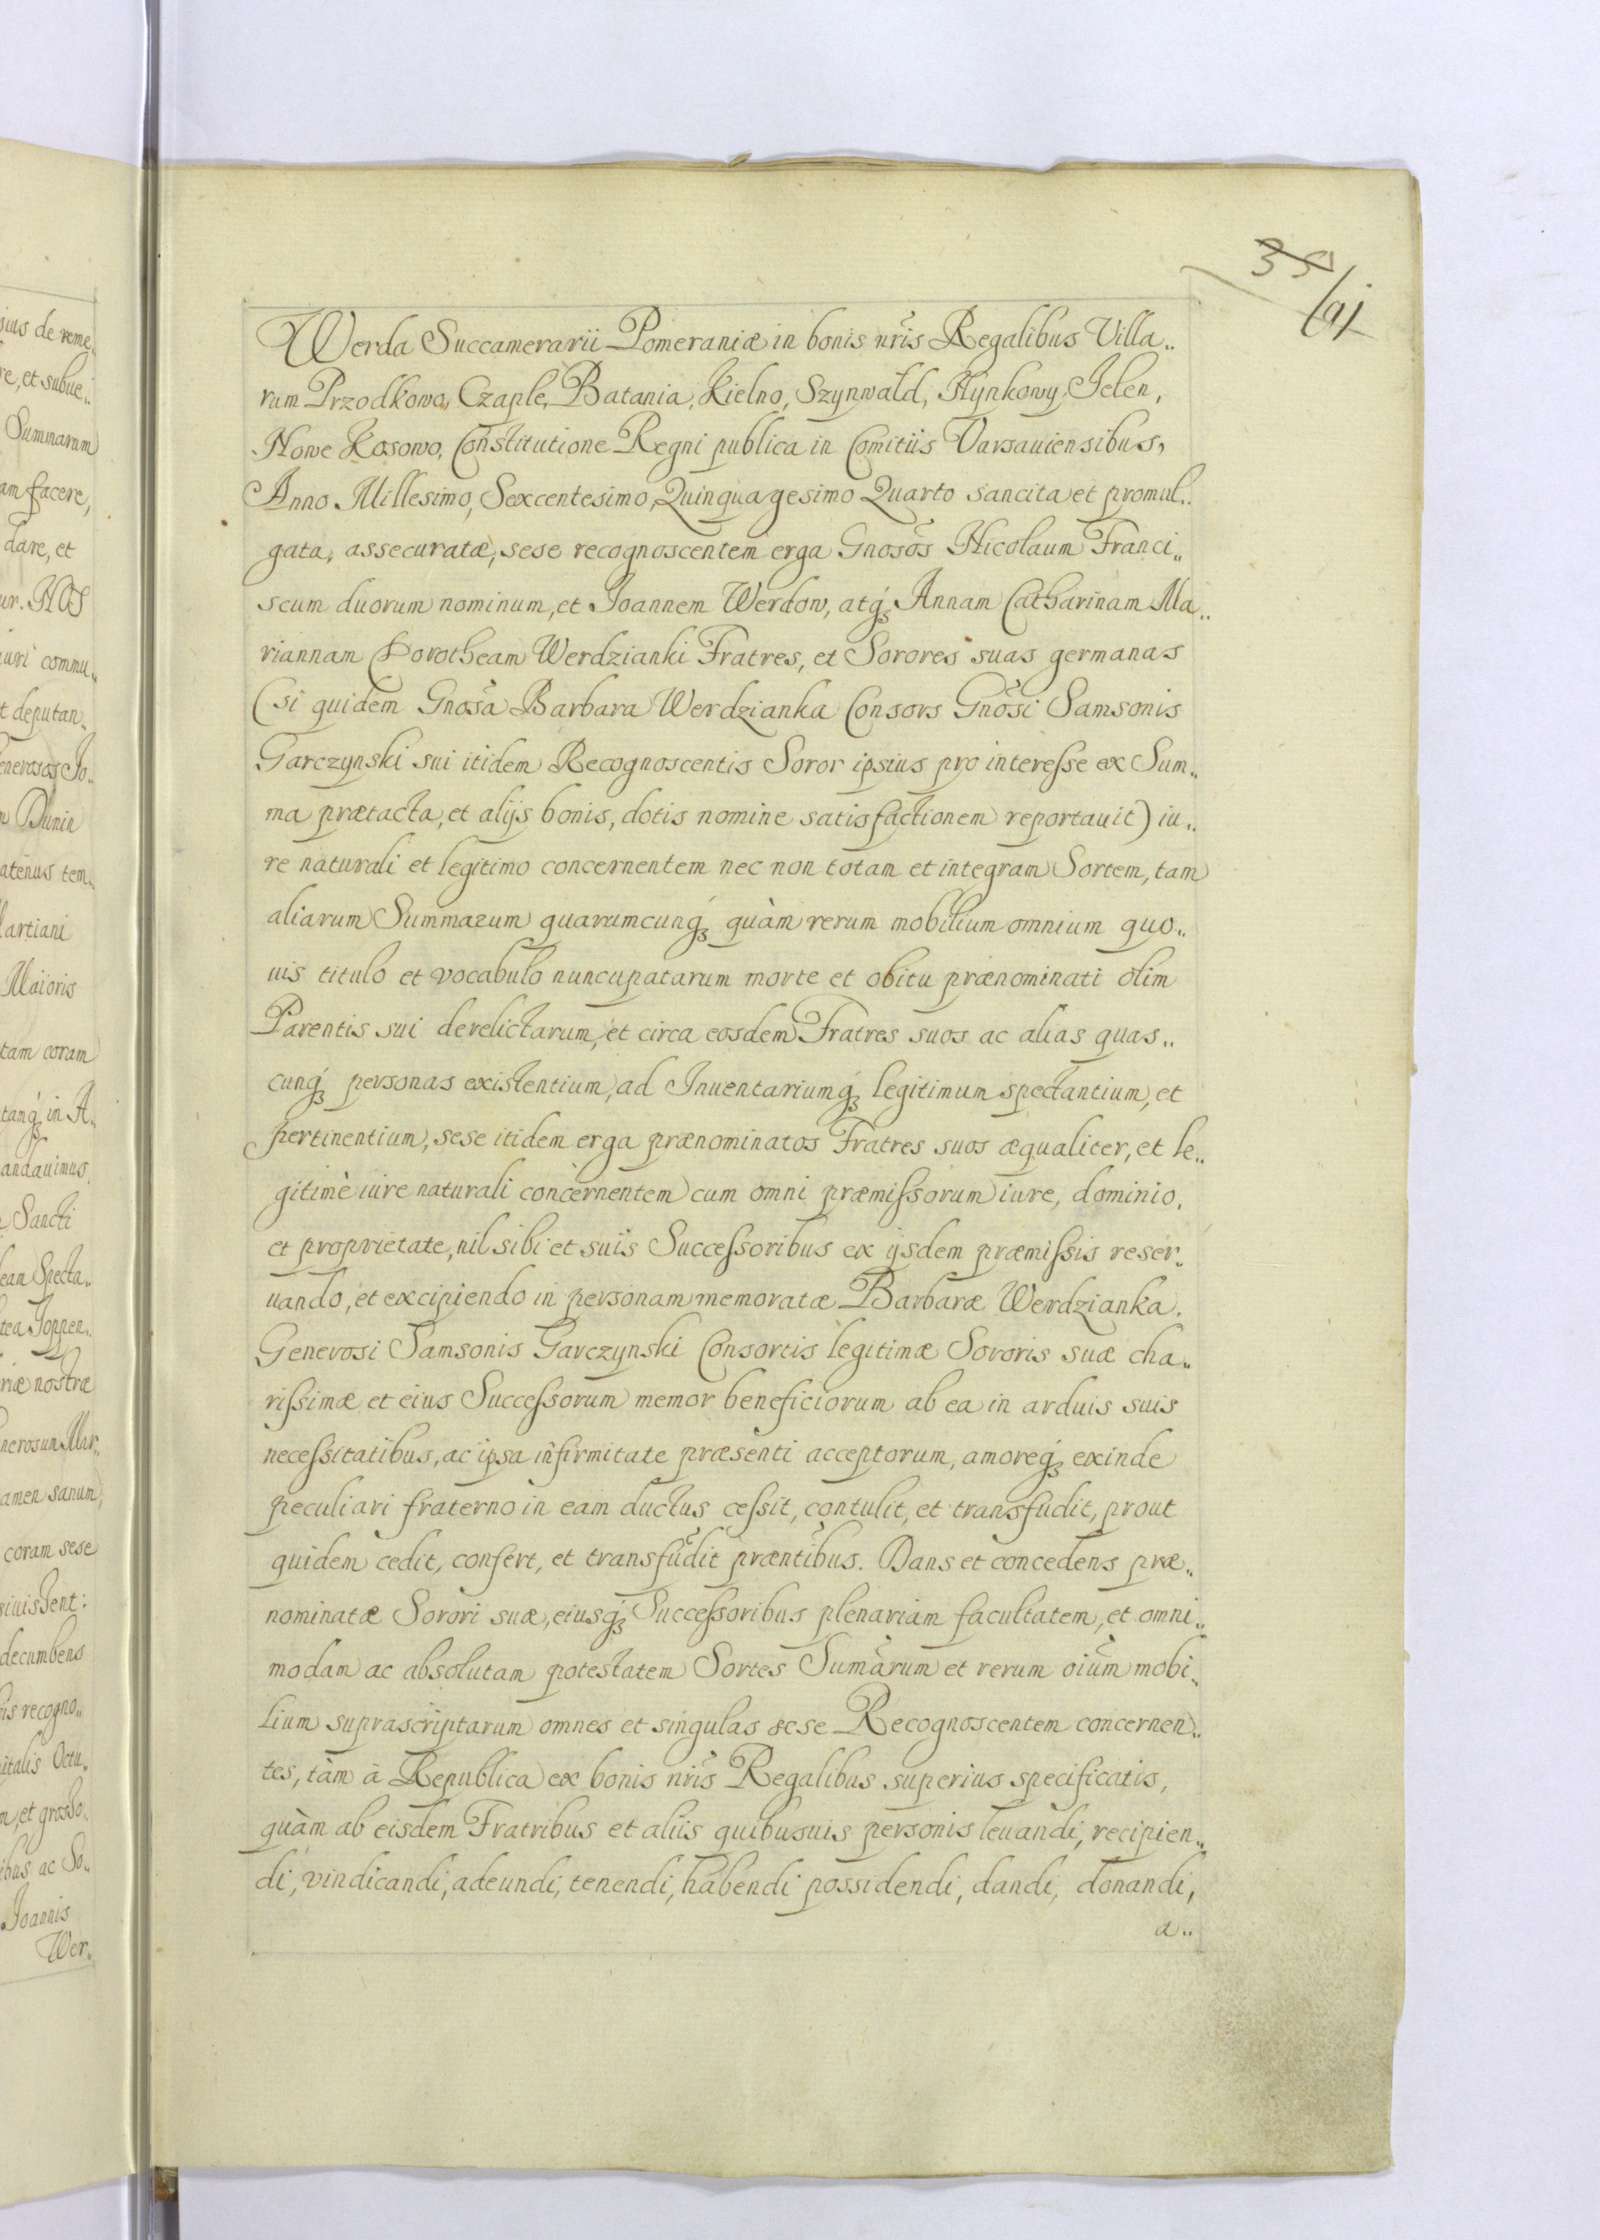 35
Werda Succamerarii Pomeraniæ in bonis nr̃is Regalibus Villa..
rum Przodkowo, Czaple, Batania, Kielno, Szynwałd, Hynkowy Jelen,
Nowe Kosowo, Constitutione Regni publica in Comitiis Varsauiensibus,
Anno Millesimo, Sexcentesimo, Quinquagesimo Quarto sancita et promul..
gata, assecuratæ, sese recognoscentem erga Gnosõs Nicolaum Franci..
scum duorum nominum, et Joannem Werdow, atq́ꝫ Annam Catharinam Ma..
riannam Dorotheam Werdzianki Fratres, et Sorores suas germanas
(si quidem Gnosã Barbara Werdzianka Consors Gnõsi Samsonis
Garczynski sui itidem Recognoscentis Soror ipsius pro interesse ex Sum..
ma prætacta, et alijs bonis, dotis nomine satisfactionem reportauit) iu..
re naturali et legitimo concernentem nec non totam et integram Sortem, tam
aliarum Summarum quarumcunq́ꝫ quàm rerum mobilium omnium quo..
uis titulo et vocabulo nuncupatarum morte et obitu prænominati olim
Parentis sui derelictarum, et circa eosdem Fratres suos ac alias quas..
cunq́ꝫ personas existentium, ad Inuentariumq́ꝫ legitimum spectantium, et
pertinentium, sese itidem erga prænominatos Fratres suos æqualiter, et le..
gitimè iure naturali concernentem cum omni præmissorum iure, dominio,
et proprietate, nil sibi et suis Successoribus ex ijsdem præmissis reser..
uando, et excipiendo in personam memoratæ Barbaræ Werdzianka.
Generosi Samsonis Garczynski Consortis legitimæ Sororis suæ cha..
rissimæ et eius Successorum memor beneficiorum ab ea in arduis suis
necessitatibus, ac ipsa infirmitate præsenti acceptorum, amoreq́ꝫ exinde
peculiari fraterno in eam ductus cessit, contulit, et transfudit, prout
quidem cedit, confert, et transfudit præntibus̃. Dans et concedens præ..
nominatæ Sorori suæ, eiusq́ꝫ Successoribus plenariam facultatem, et omni..
modam ac absolutam potestatem Sortes Sumãrum et rerum oiũm mobi..
lium suprascriptarum omnes et singulas sese Recognoscentem concernen..
tes, tàm à Republica ex bonis nr̃is Regalibus superius specificatis,
quàm ab eisdem Fratribus et aliis quibusuis personis leuandi, recipien..
di, vindicandi, adeundi, tenendi, habendi possidendi, dandi, donandi,
a..